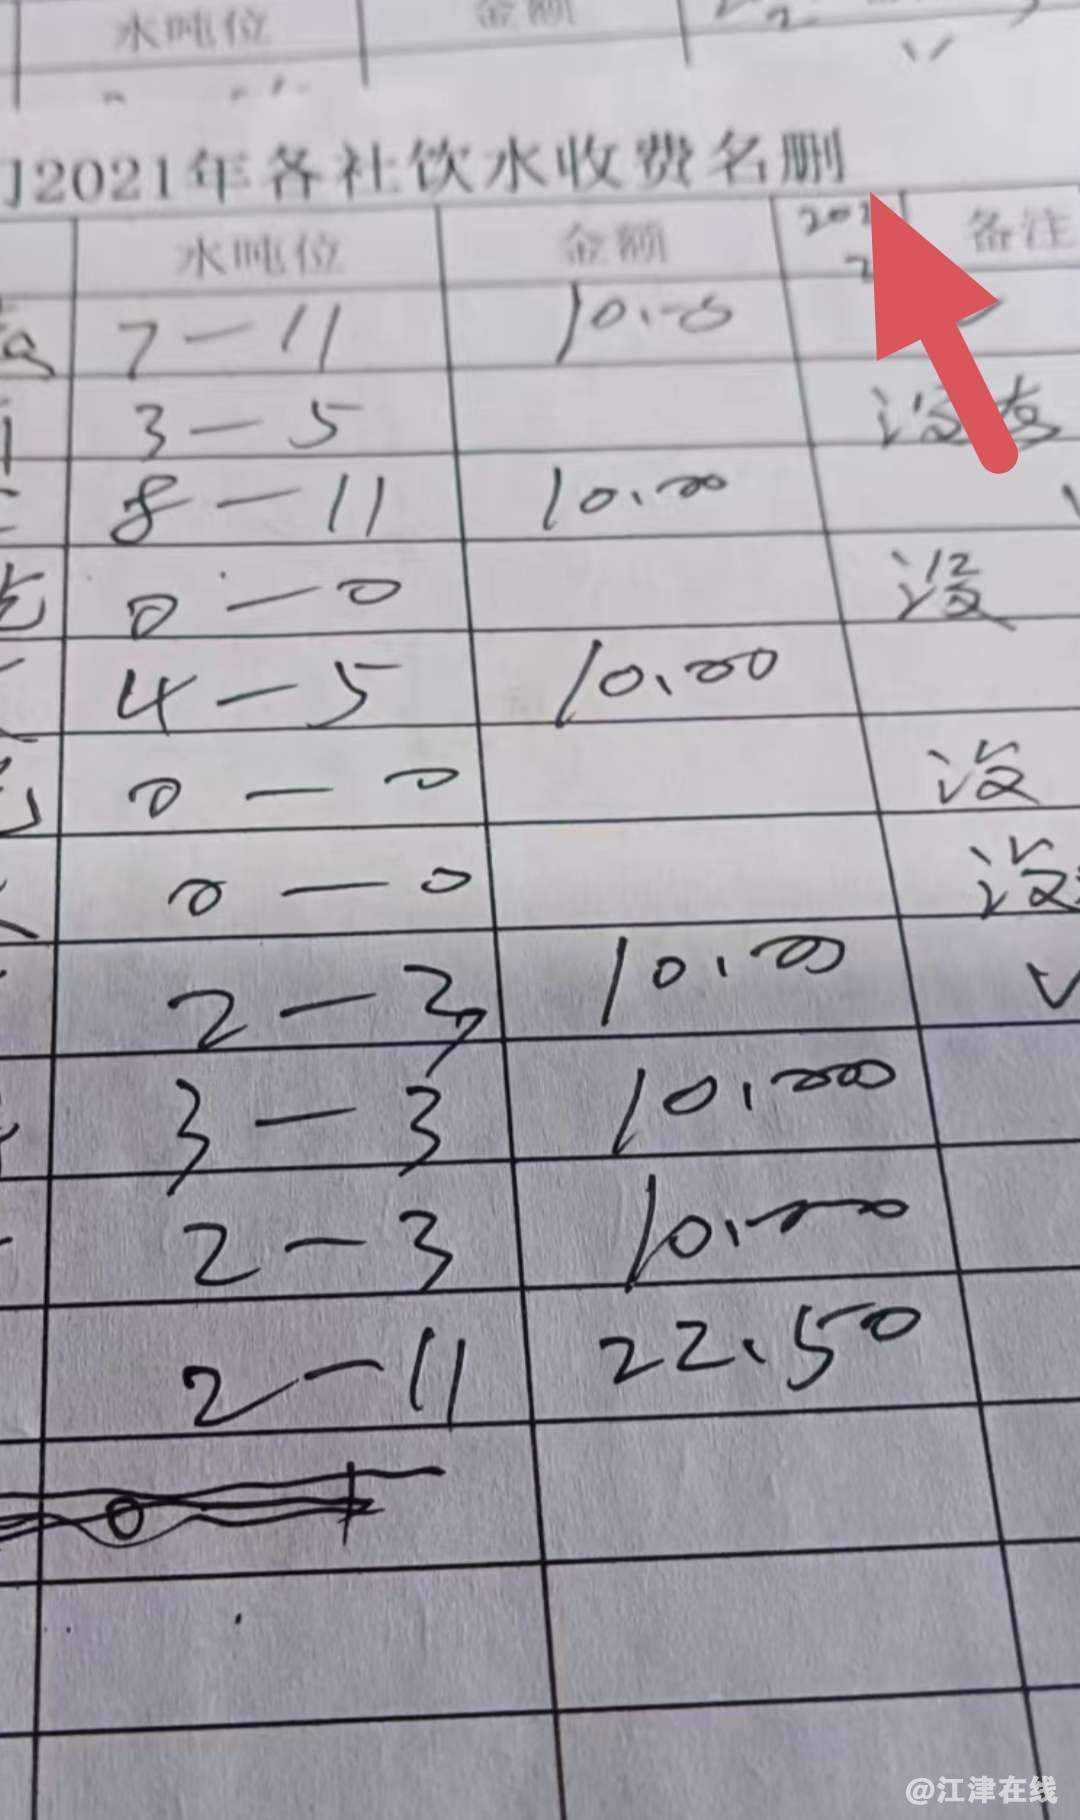 水吨位 金额
2021年各社饮水收费名删
水吨位 金额 备注
7－11 10.00
3－5 没有
8－11 10.00
0－0 没
4－5 10.00
0－0 没
0－0 没
2－3 10.00
3－3 10.000
2－3 10.000
2－11 22.50
@江津在线